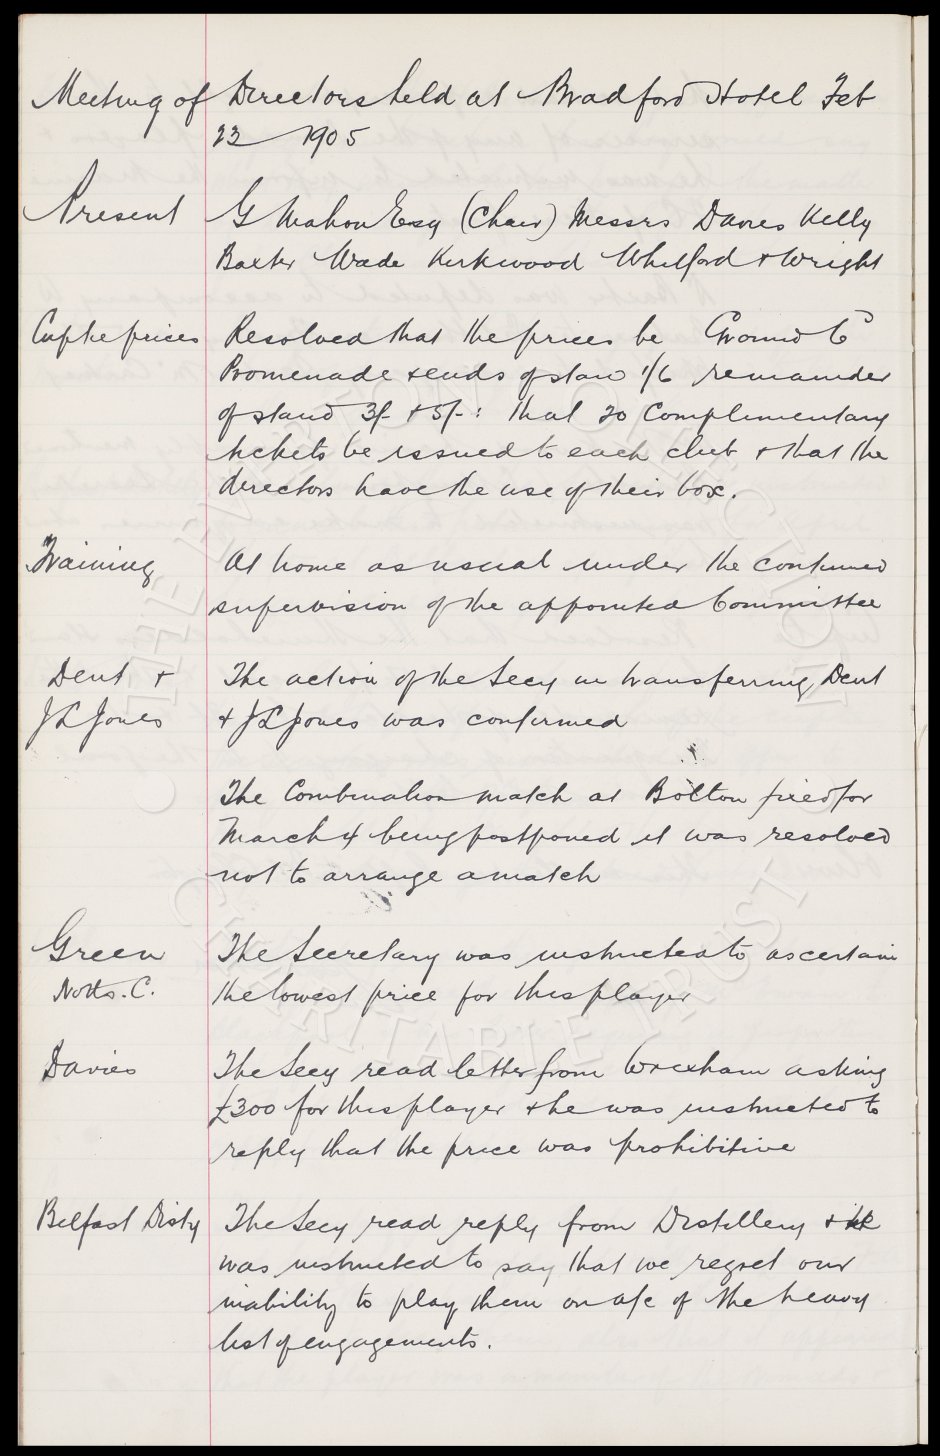 Meeting of Directors held at Bradford Hotel Feb
23 1905
Present G Mahon Esq (Chair) Messrs Davies Kelly
Baxter Wade Kirkwood Whitford & Wright
Cup tie prices Resolved that the prices be Ground 6
Promenade & ends of stand 1/6 remainder
of stand 3/- & 5/- : that 20 Complimentary
tickets be issued to each club & that the
directors have the use of their box.
Training At home as usual under the continued
supervision of the appointed Committee
Dent & The action of the Secy in transferring Dent
J L Jones & J L Jones was confirmed
The Combination match at Bolton fixed for
March 4 being postponed it was resolved
not to arrange a match
Green The Secretary was instructed to ascertain
Notts. C. the lowest price for this player
Davies The Secy read letter from Wrexham asking
£300 for this player & he was instructed to
reply that the price was prohibitive
Belfast Disty The Secy read reply from Distillery & he
was instructed to say that we regret our
inability to play them on a/c of the heavy
list of engagements.
EVERTON COLLECTION
CHARITABLE TRUST